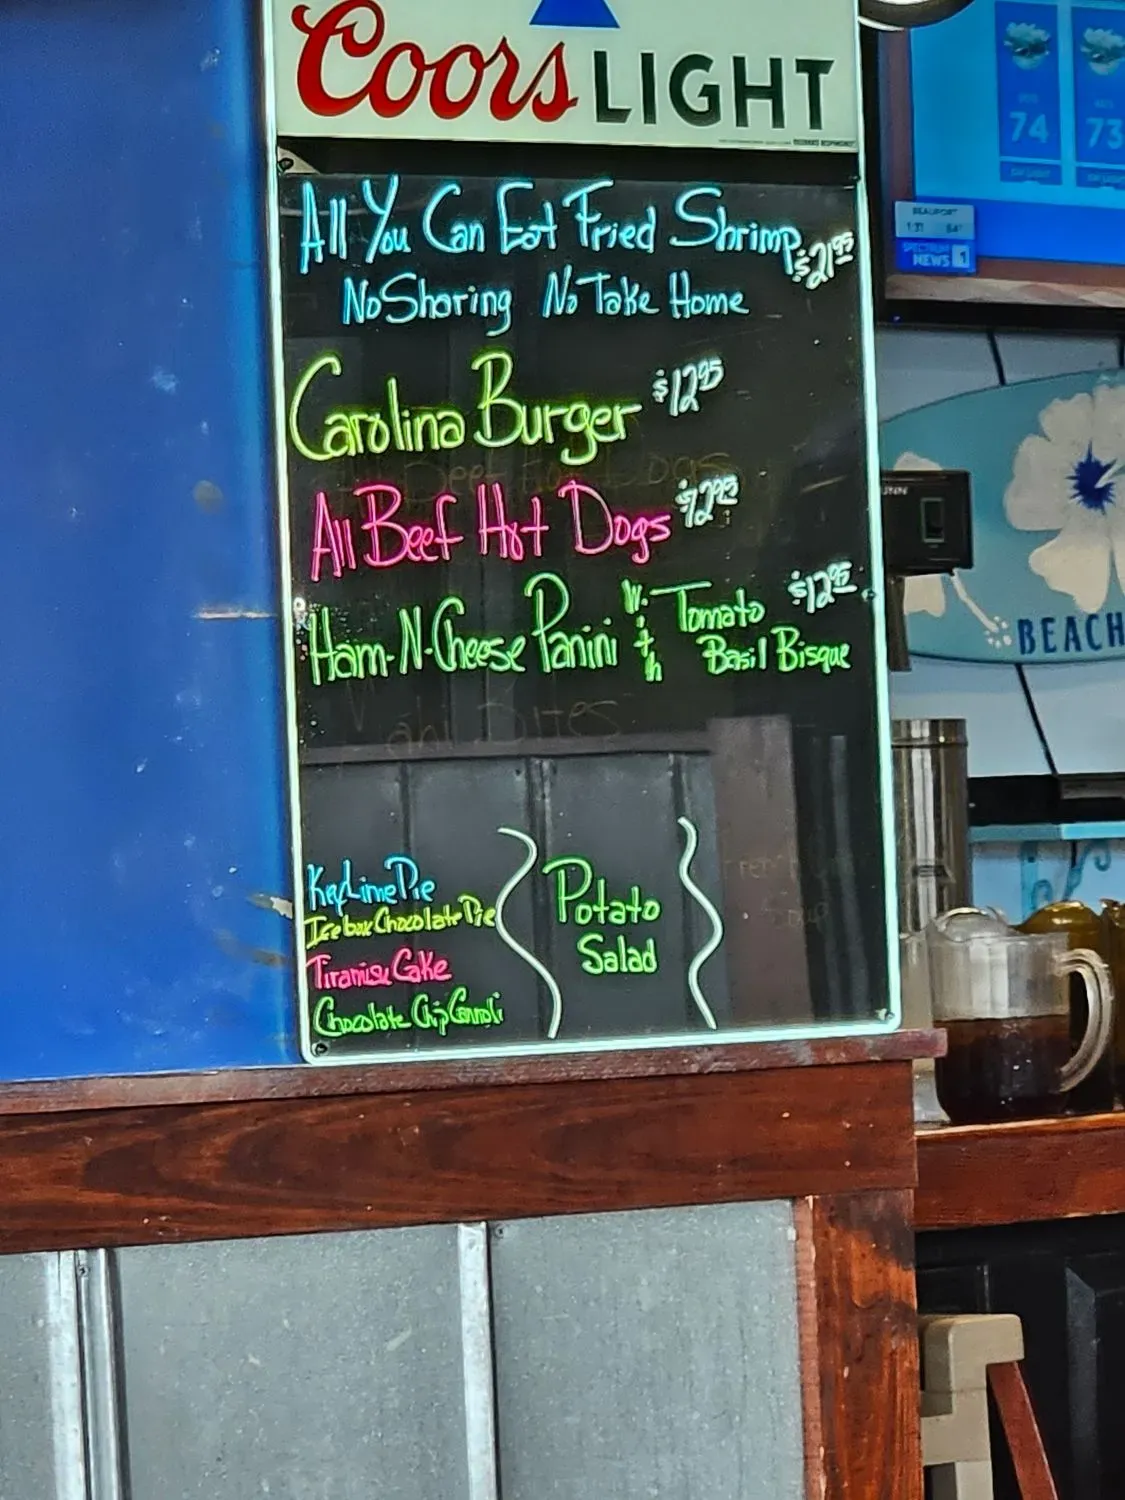 Coors LIGHT
All You Can Eat Fried Shrimp $21.95
No Sharing No Take Home
Carolina Burger $12.95
All Beef Hot Dogs
Ham-N-Cheese Panini with Tomato Basil Bisque $12.95
Key Lime Pie
Ice box Chocolate Pie
Tiramisu Cake
Chocolate Chip Cannoli
Potato
Salad
74
73
BEAUFORT
1:31 84°
SPECTRUM
NEWS 1
BEACH